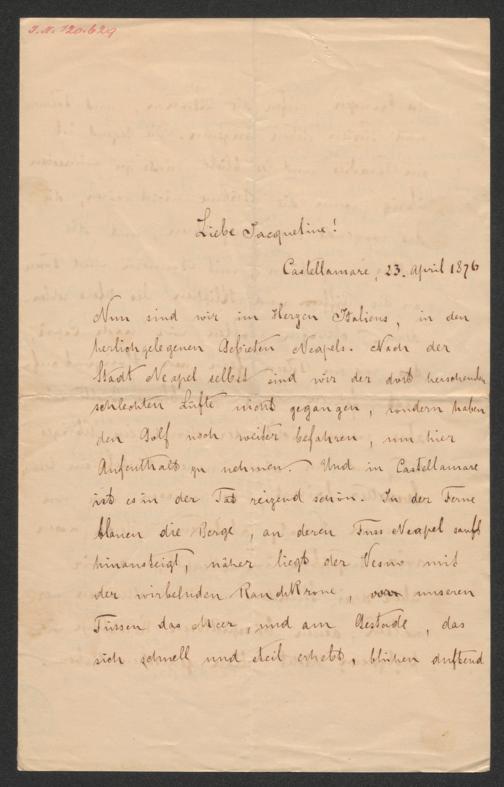 I. N. 120.629
Liebe Jacqueline!
Castellamare, 23. April 1876
Nun sind wir im Herzen Italiens, in den
herlichgelegenen Gebieten Neapels. Nach der
Stadt Neapel selbst sind wir der dort herschenden
schlechten Lüfte nicht gegangen, sondern haben
den Golf noch weiter befahren, um hier
Aufenthalt zu nehmen. Und in Castellamare
ist es in der Tat reizend schön. In der Ferne
blauen die Berge, an deren Fuss Neapel sanft
hinansteigt, näher liegt der Vesuv mit
der wirbelnden Rauchkrone, unseren
Füssen das Meer, und am Gestade, das
sich schnell und steil erhebt, blühen duftend